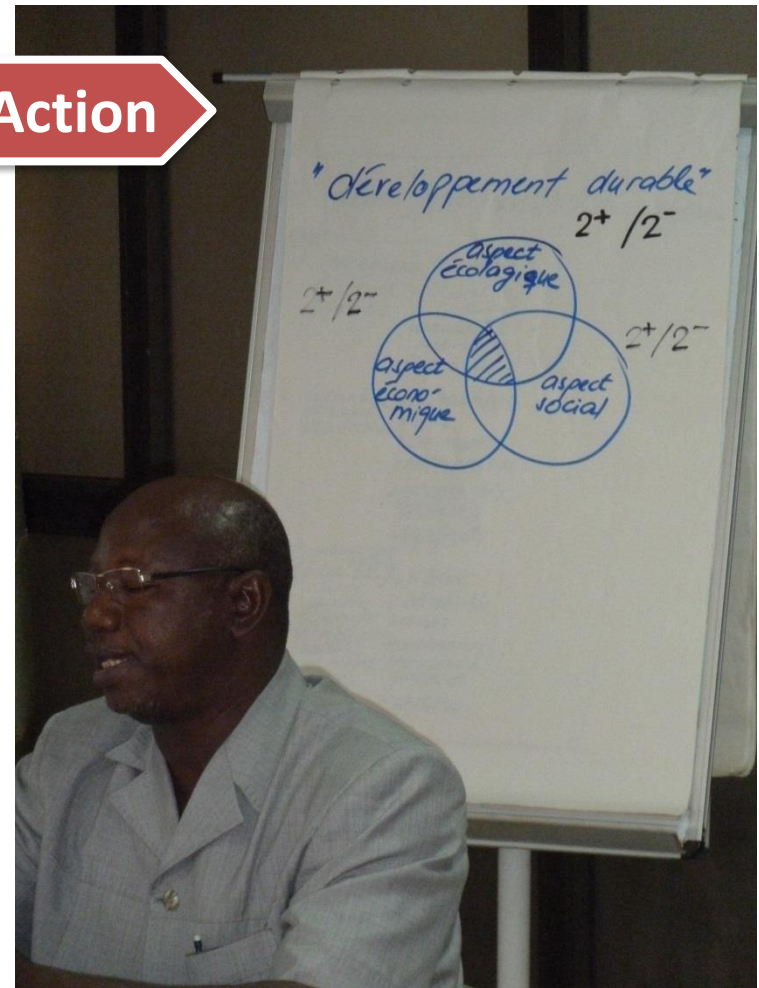 Action
"développement durable"
2+ /2-
aspect
écologique
2+/2-
2+/2-
aspect
écono-
mique
aspect
social